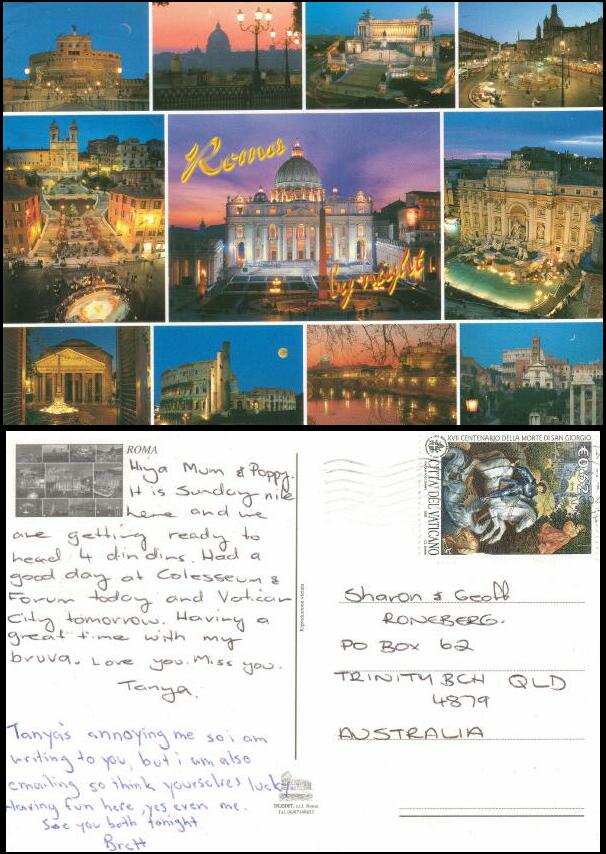 Roma
by night
ROMA
Hiya Mum & Poppy.
It is Sunday nite
here and we
are getting ready to
head 4 din dins. Had a
good day at Colesseum &
Forum today and Vatican
City tomorrow. Having a
great time with my
bruva. Love you. Miss you.
Tanya.
Tanya's annoying me so i am
writing to you, but i am also
emailing so think yourselves lucky.
Having fun here, yes even me.
See you both tonight
Brett
XVII CENTENARIO DELLA MORTE DI SAN GIORGIO
CITTÀ DEL VATICANO
€0,62
Sharon & Geoff
RONEBERG.
PO BOX 62
TRINITY BCH QLD
4879
AUSTRALIA
Riproduzione vietata
s.r.l. Roma